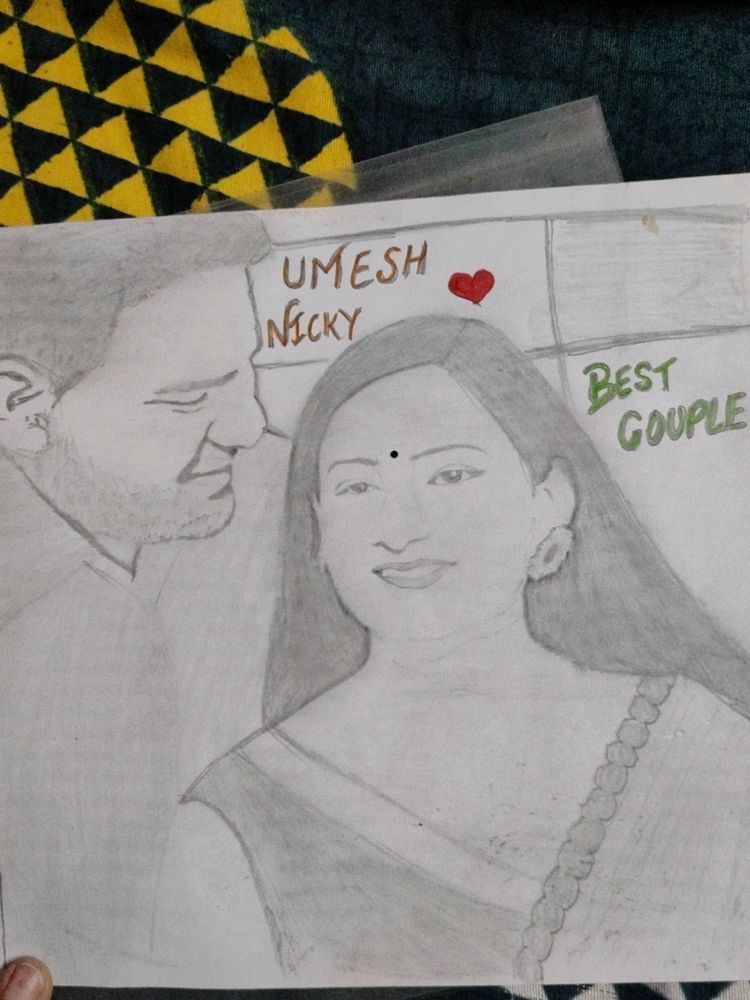 UMESH
NICKY
BEST
COUPLE